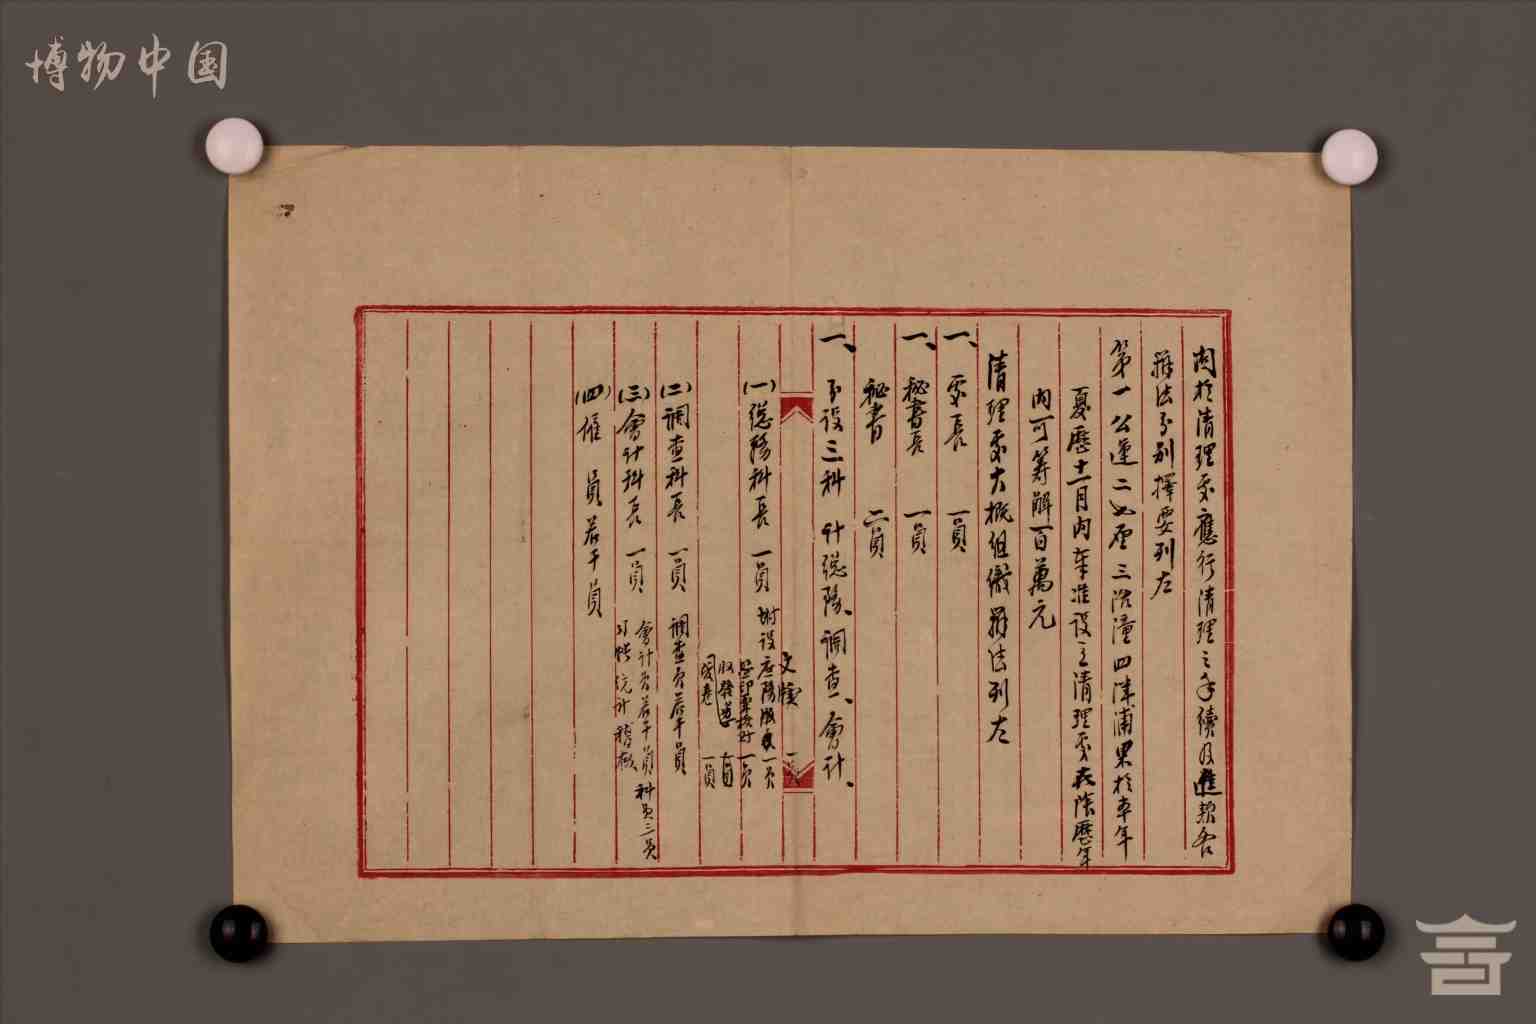 博物中国
關於清理處應行清理之手續及進款各
辦法分別擇要列左
第一公運二 三 潼四津浦果於本年
夏歷十一月內奉准設立清理處在陰歷年
內可籌解一百萬元
清理處大概組織辦法列左
一、處長 一員
一、秘書長 一員
秘書 二員
一、分設三科 計總務、調查、會計、
文牘 一員
(一)總務科長 一員 附設庶務 一員
監印兼校對 一員
收發 一員
管卷 一員
(二)調查科長 一員 調查員若干員
(三)會計科長 一員 會計員若干員 科員三員
統計稽核
(四)催員若干員